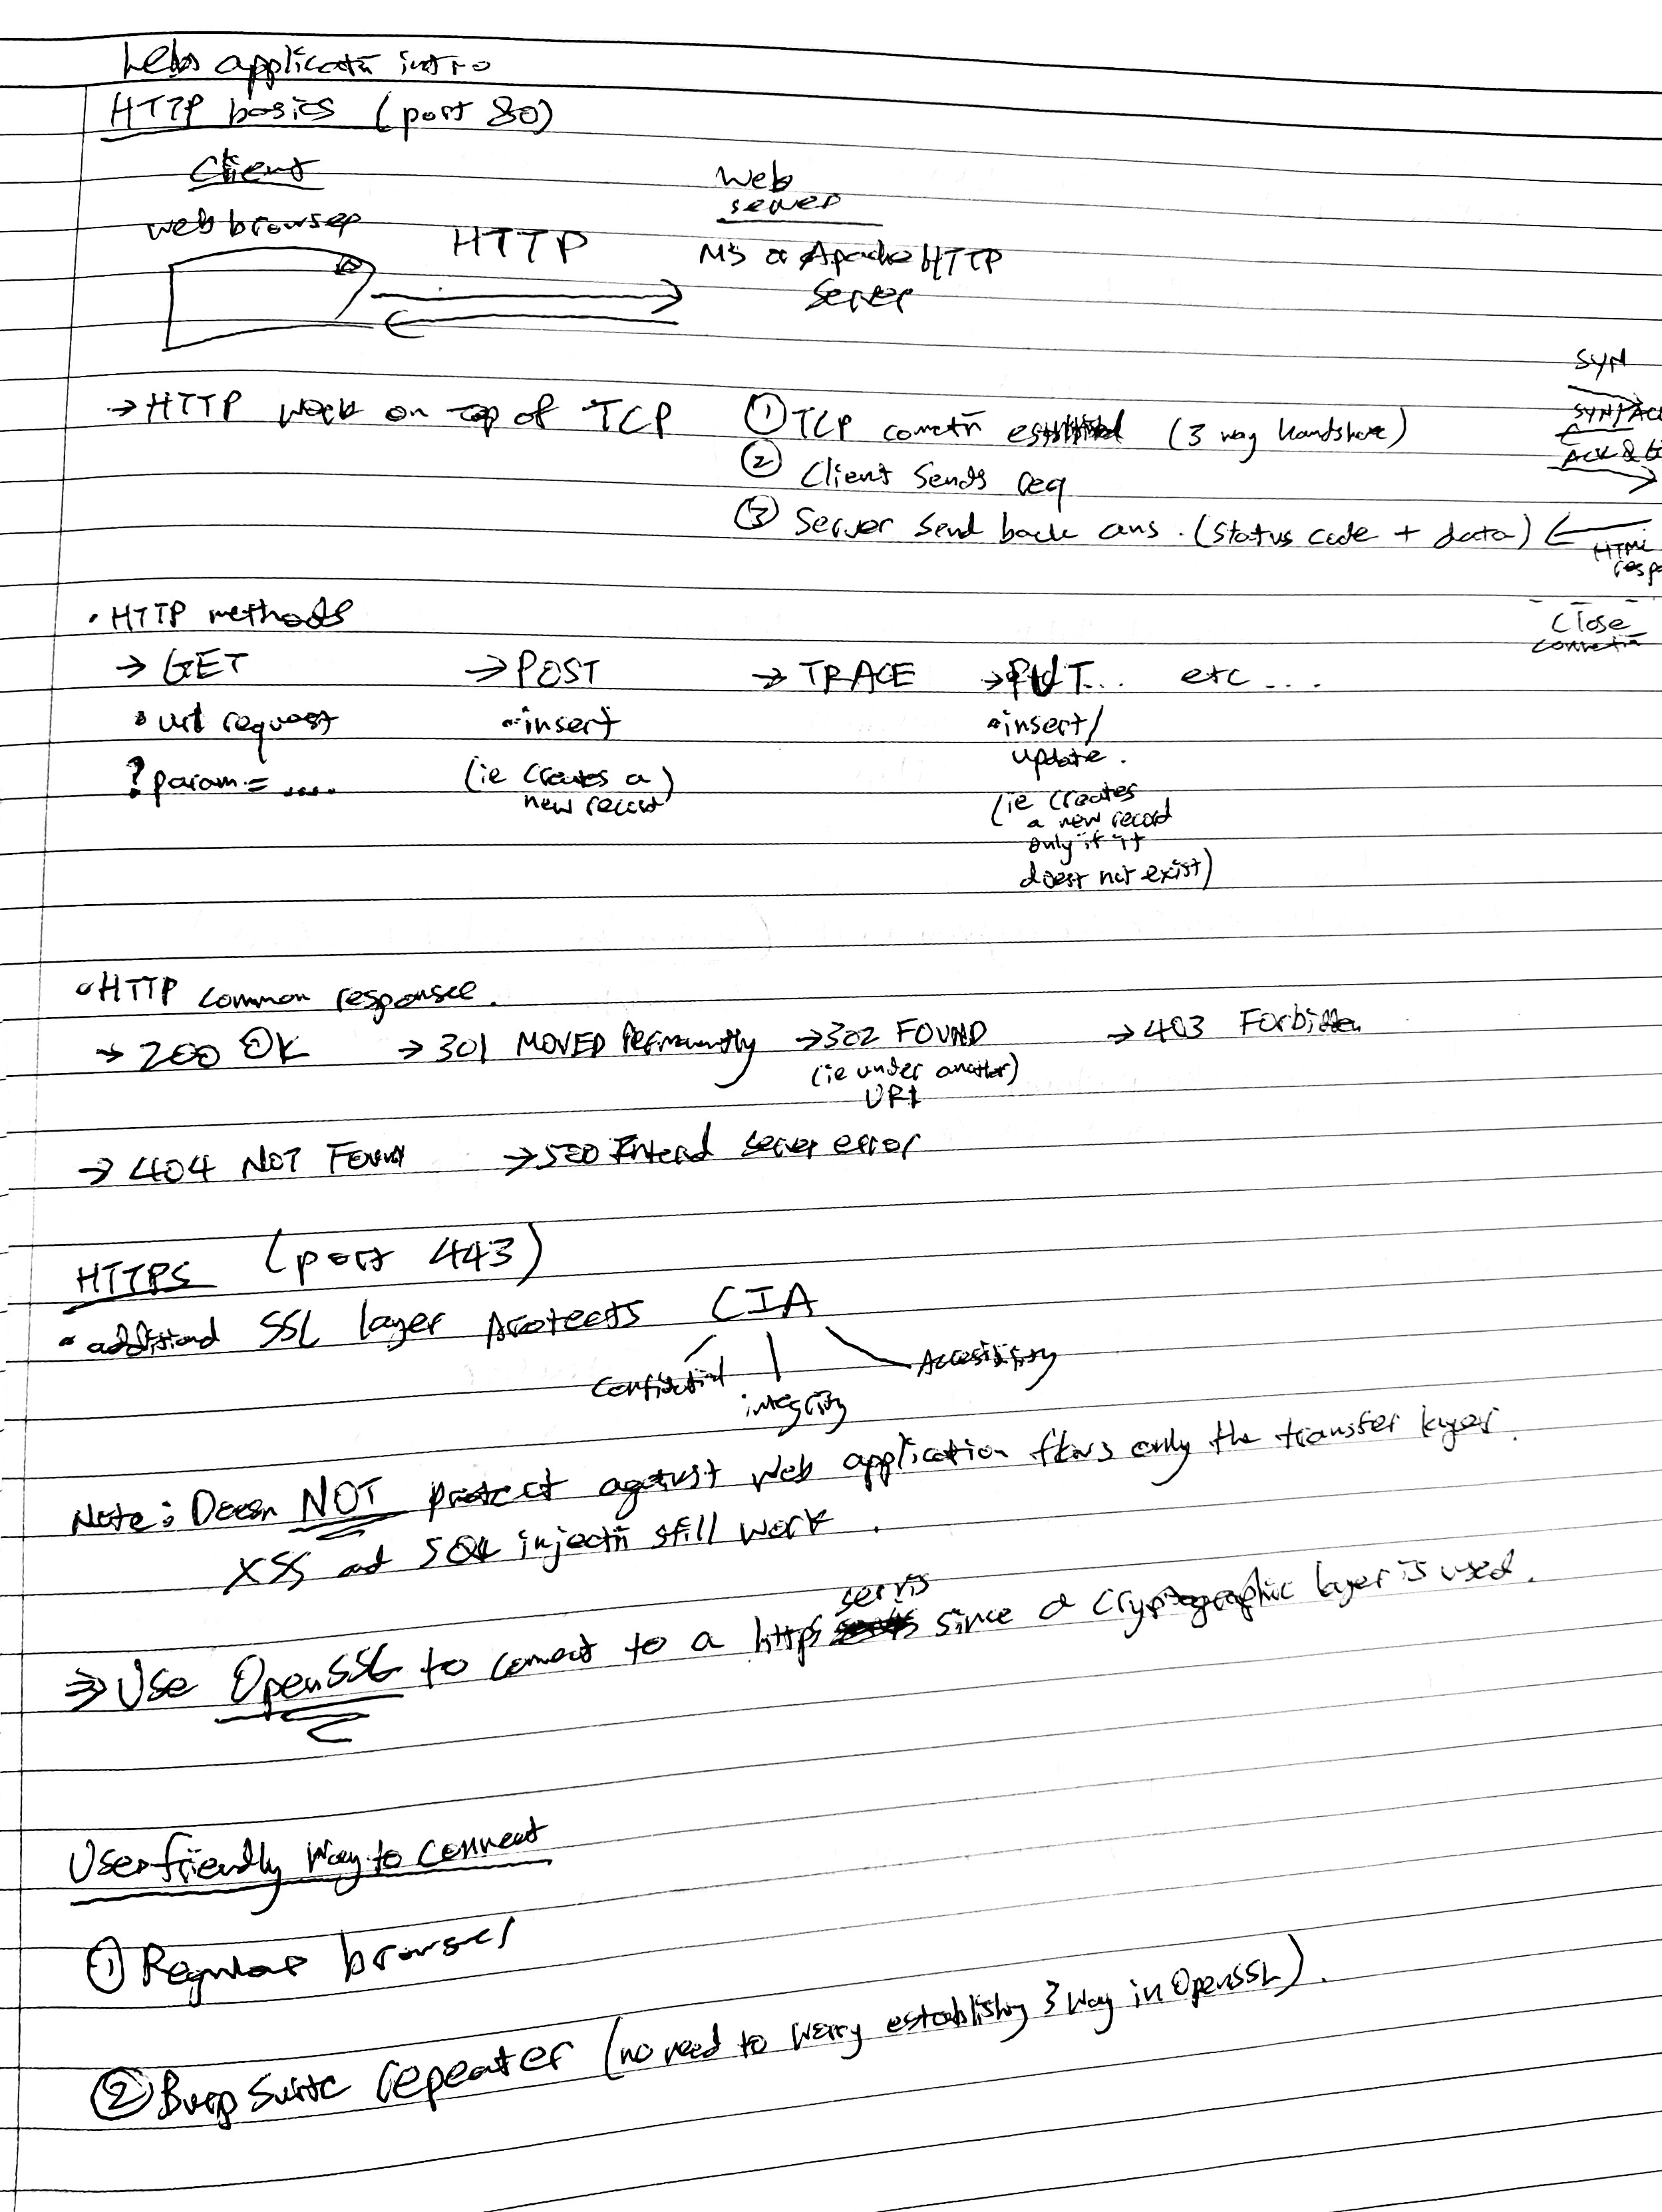 Web applicatn intro
HTTP basics (port 80)
Client
Web browser
HTTP
Web server
MS or Apache HTTP Server
→ HTTP work on top of TCP
① TCP connectn established (3 way handshake)
② Client sends req
③ Server send back ans. (status code + data)
SYN
SYN/ACK
ACK &
HTML
resp
Close
connectn
• HTTP methods
→ GET → POST → TRACE → PUT... etc ...
• url request
?param= ....
• insert
(ie creates a new record)
• insert/
update.
(ie creates
a new record
only if it
doesn't not exist)
• HTTP common response.
→ 200 OK → 301 MOVED Permanently → 302 FOUND → 403 Forbidden
(ie under another)
URI
→ 404 NOT Found → 500 Internal server error
HTTPS (port 443)
• additional SSL layer protects CIA
Confidential
integrity
Accessibility
Note: Doesn NOT protect against web application flaws only the transfer layer.
XSS and SQL injectn still work.
⇒ Use OpenSSL to connect to a https servis since a cryptographic layer is used.
User friendly way to connect
① Regular browser
② Burp Suite repeater (no need to worry establishing 3 way in OpenSSL).